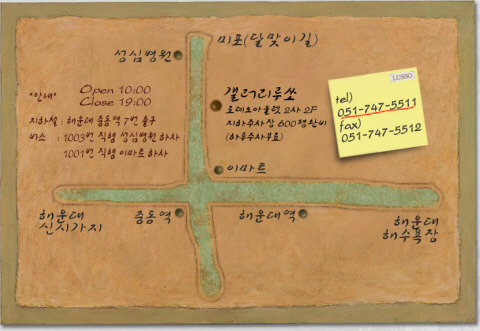 미포(달맞이길)
성심병원
LUSSO
*안내*
Open 10:00
Close 19:00
갤러리루쏘
로데오아울렛 2사 2F
지하주차장 600평완비
(하루주차무료)
tel)
051-747-5511
fax)
051-747-5512
지하철 : 해운대 중동역 7번 출구
버스 : 1003번 직행 성심병원 하차
1001번 직행 이마트 하차
이마트
해운대
신시가지
중동역
해운대역
해운대
해수욕장